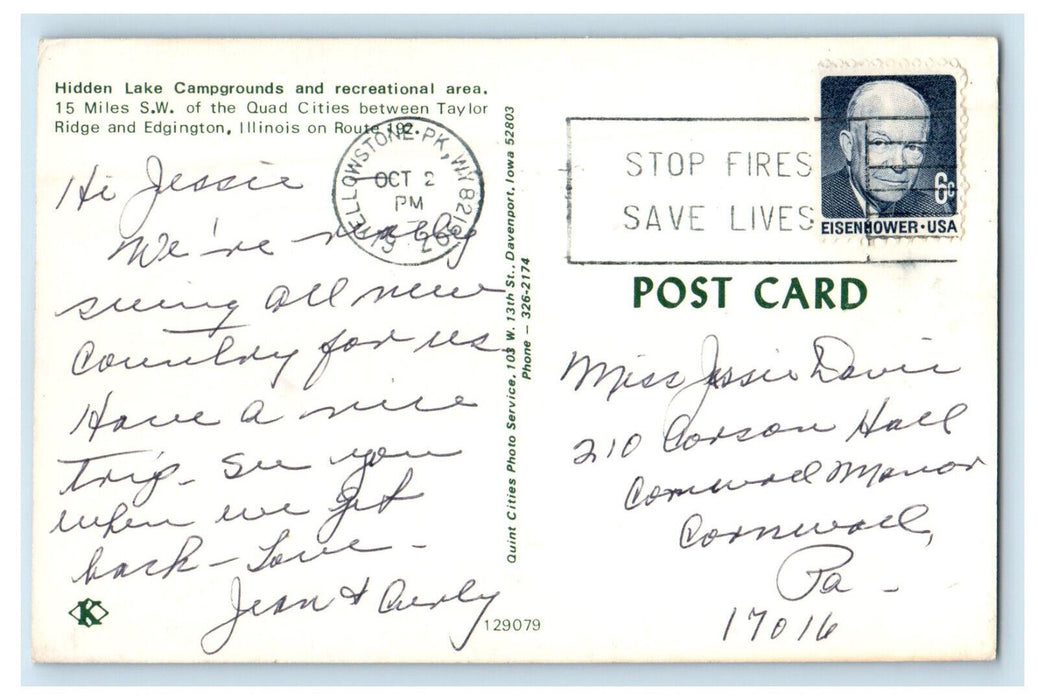 Hidden Lake Campgrounds and recreational area.
15 Miles S.W. of the Quad Cities between Taylor
Ridge and Edgington, Illinois on Route 192.
YELLOWSTONE PK, WY 82190
OCT 2
PM
STOP FIRES
SAVE LIVES
6c
EISENHOWER·USA
Hi Jessie –
We're really
seeing all new
country for us.
Have a nice
trip – See you
when we get
back – Love –
Jean & Curly
K
129079
Quint Cities Photo Service, 103 W. 13th St., Davenport, Iowa 52803
Phone – 326-2174
POST CARD
Miss Jessie Davis
210 Corson Hall
Cornwall Manor
Cornwall,
Pa –
17016